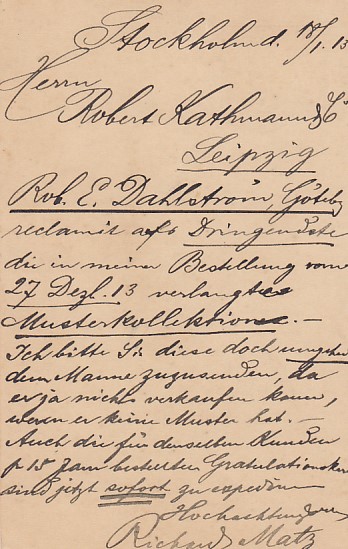 Stockholm d. 18/1. 13
Herrn
Robert Kathmann & Co
Leipzig
Rob. E. Dahlström, Göteb
reclamirt aufs Dringendste
die in meiner Bestellung vom
27 Dezb. 13 verlangte
Musterkollektion. –
Ich bitte Sie diese doch umgehen
dem Manne zuzusenden, da
er ja nichts verkaufen kann,
wenn er keine Muster hat. –
Auch die für denselben Kunden
p 15 Jan bestellten Gratulationskar
sind jetzt sofort zu expedi
Hochachtungs
Richard Matz